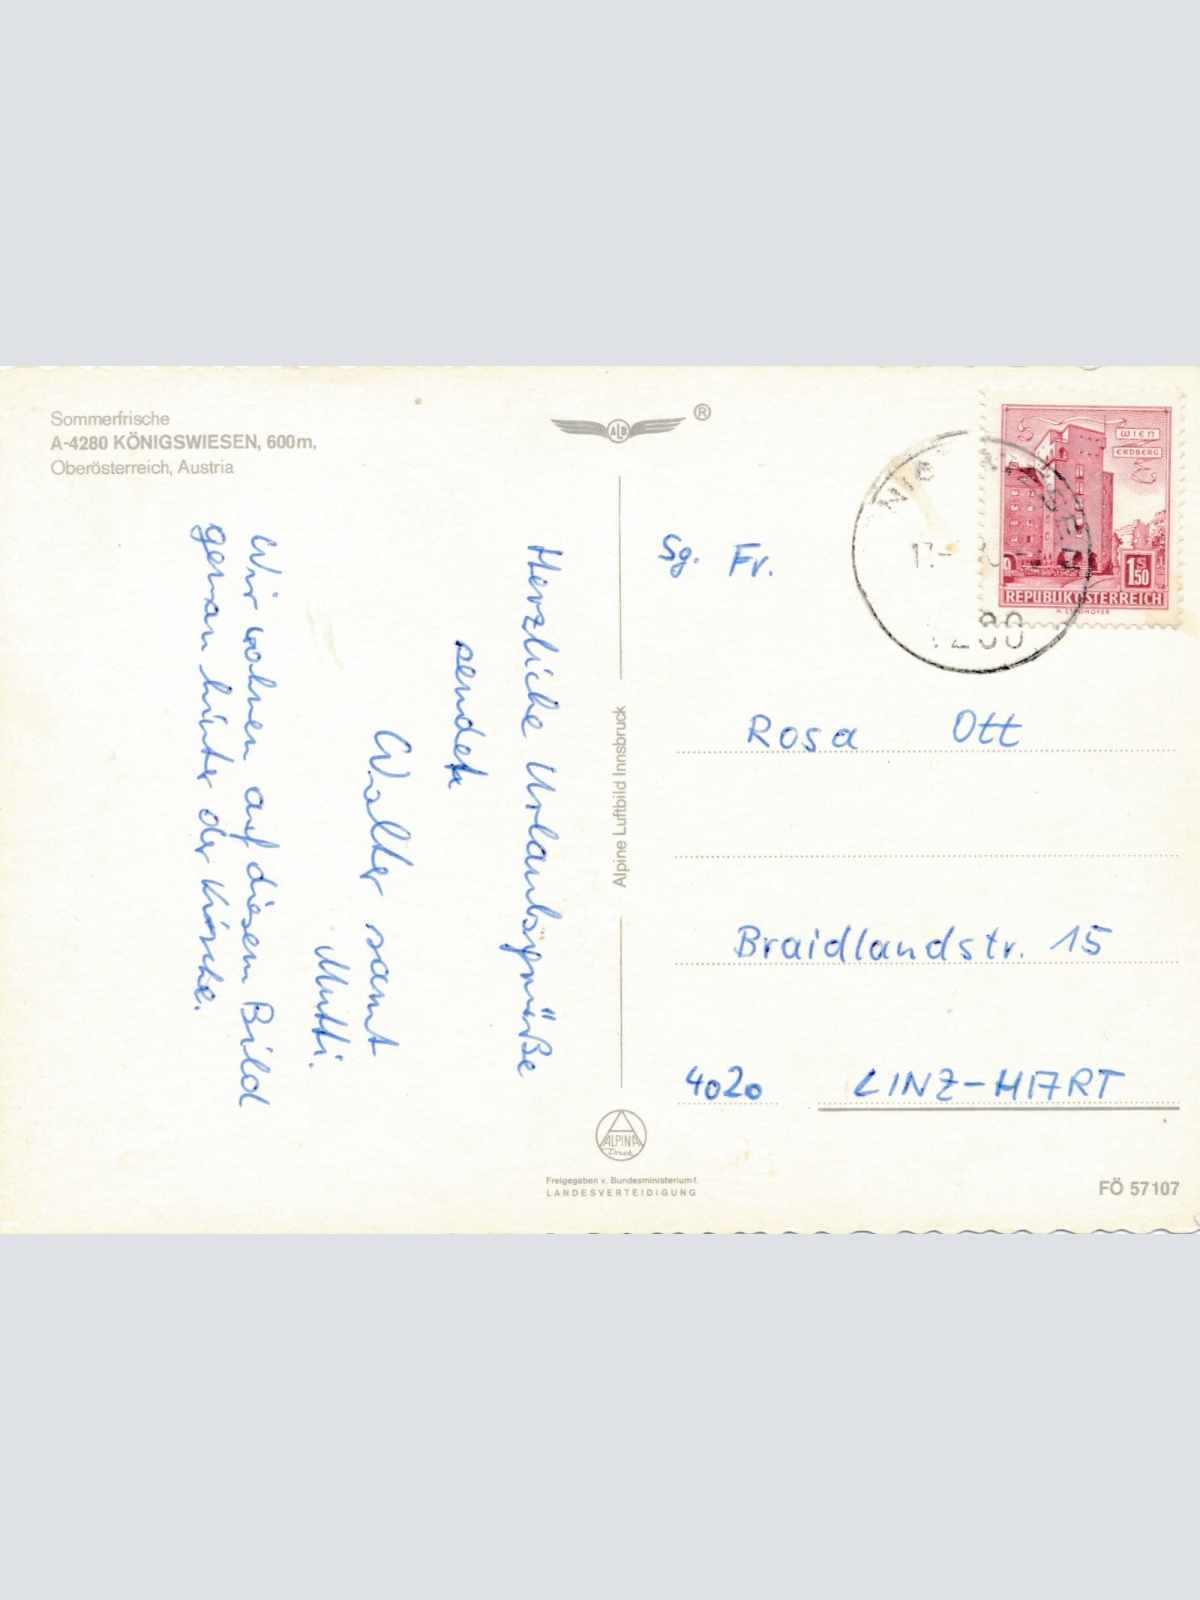 Sommerfrische
A-4280 KÖNIGSWIESEN, 600m,
Oberösterreich, Austria
Herzliche Urlaubsgrüße
sendet
Walter samt
Mutti.
Wir wohnen auf diesem Bild
genau hinter der Kirche.
ALB
®
Alpine Luftbild Innsbruck
ALPINA
Druck
Freigegeben v. Bundesministerium f.
LANDESVERTEIDIGUNG
WIEN
ERDBERG
1S50
REPUBLIK ÖSTERREICH
Sg. Fr.
Rosa Ott
Braidlandstr. 15
4020 LINZ-HART
FÖ 57107